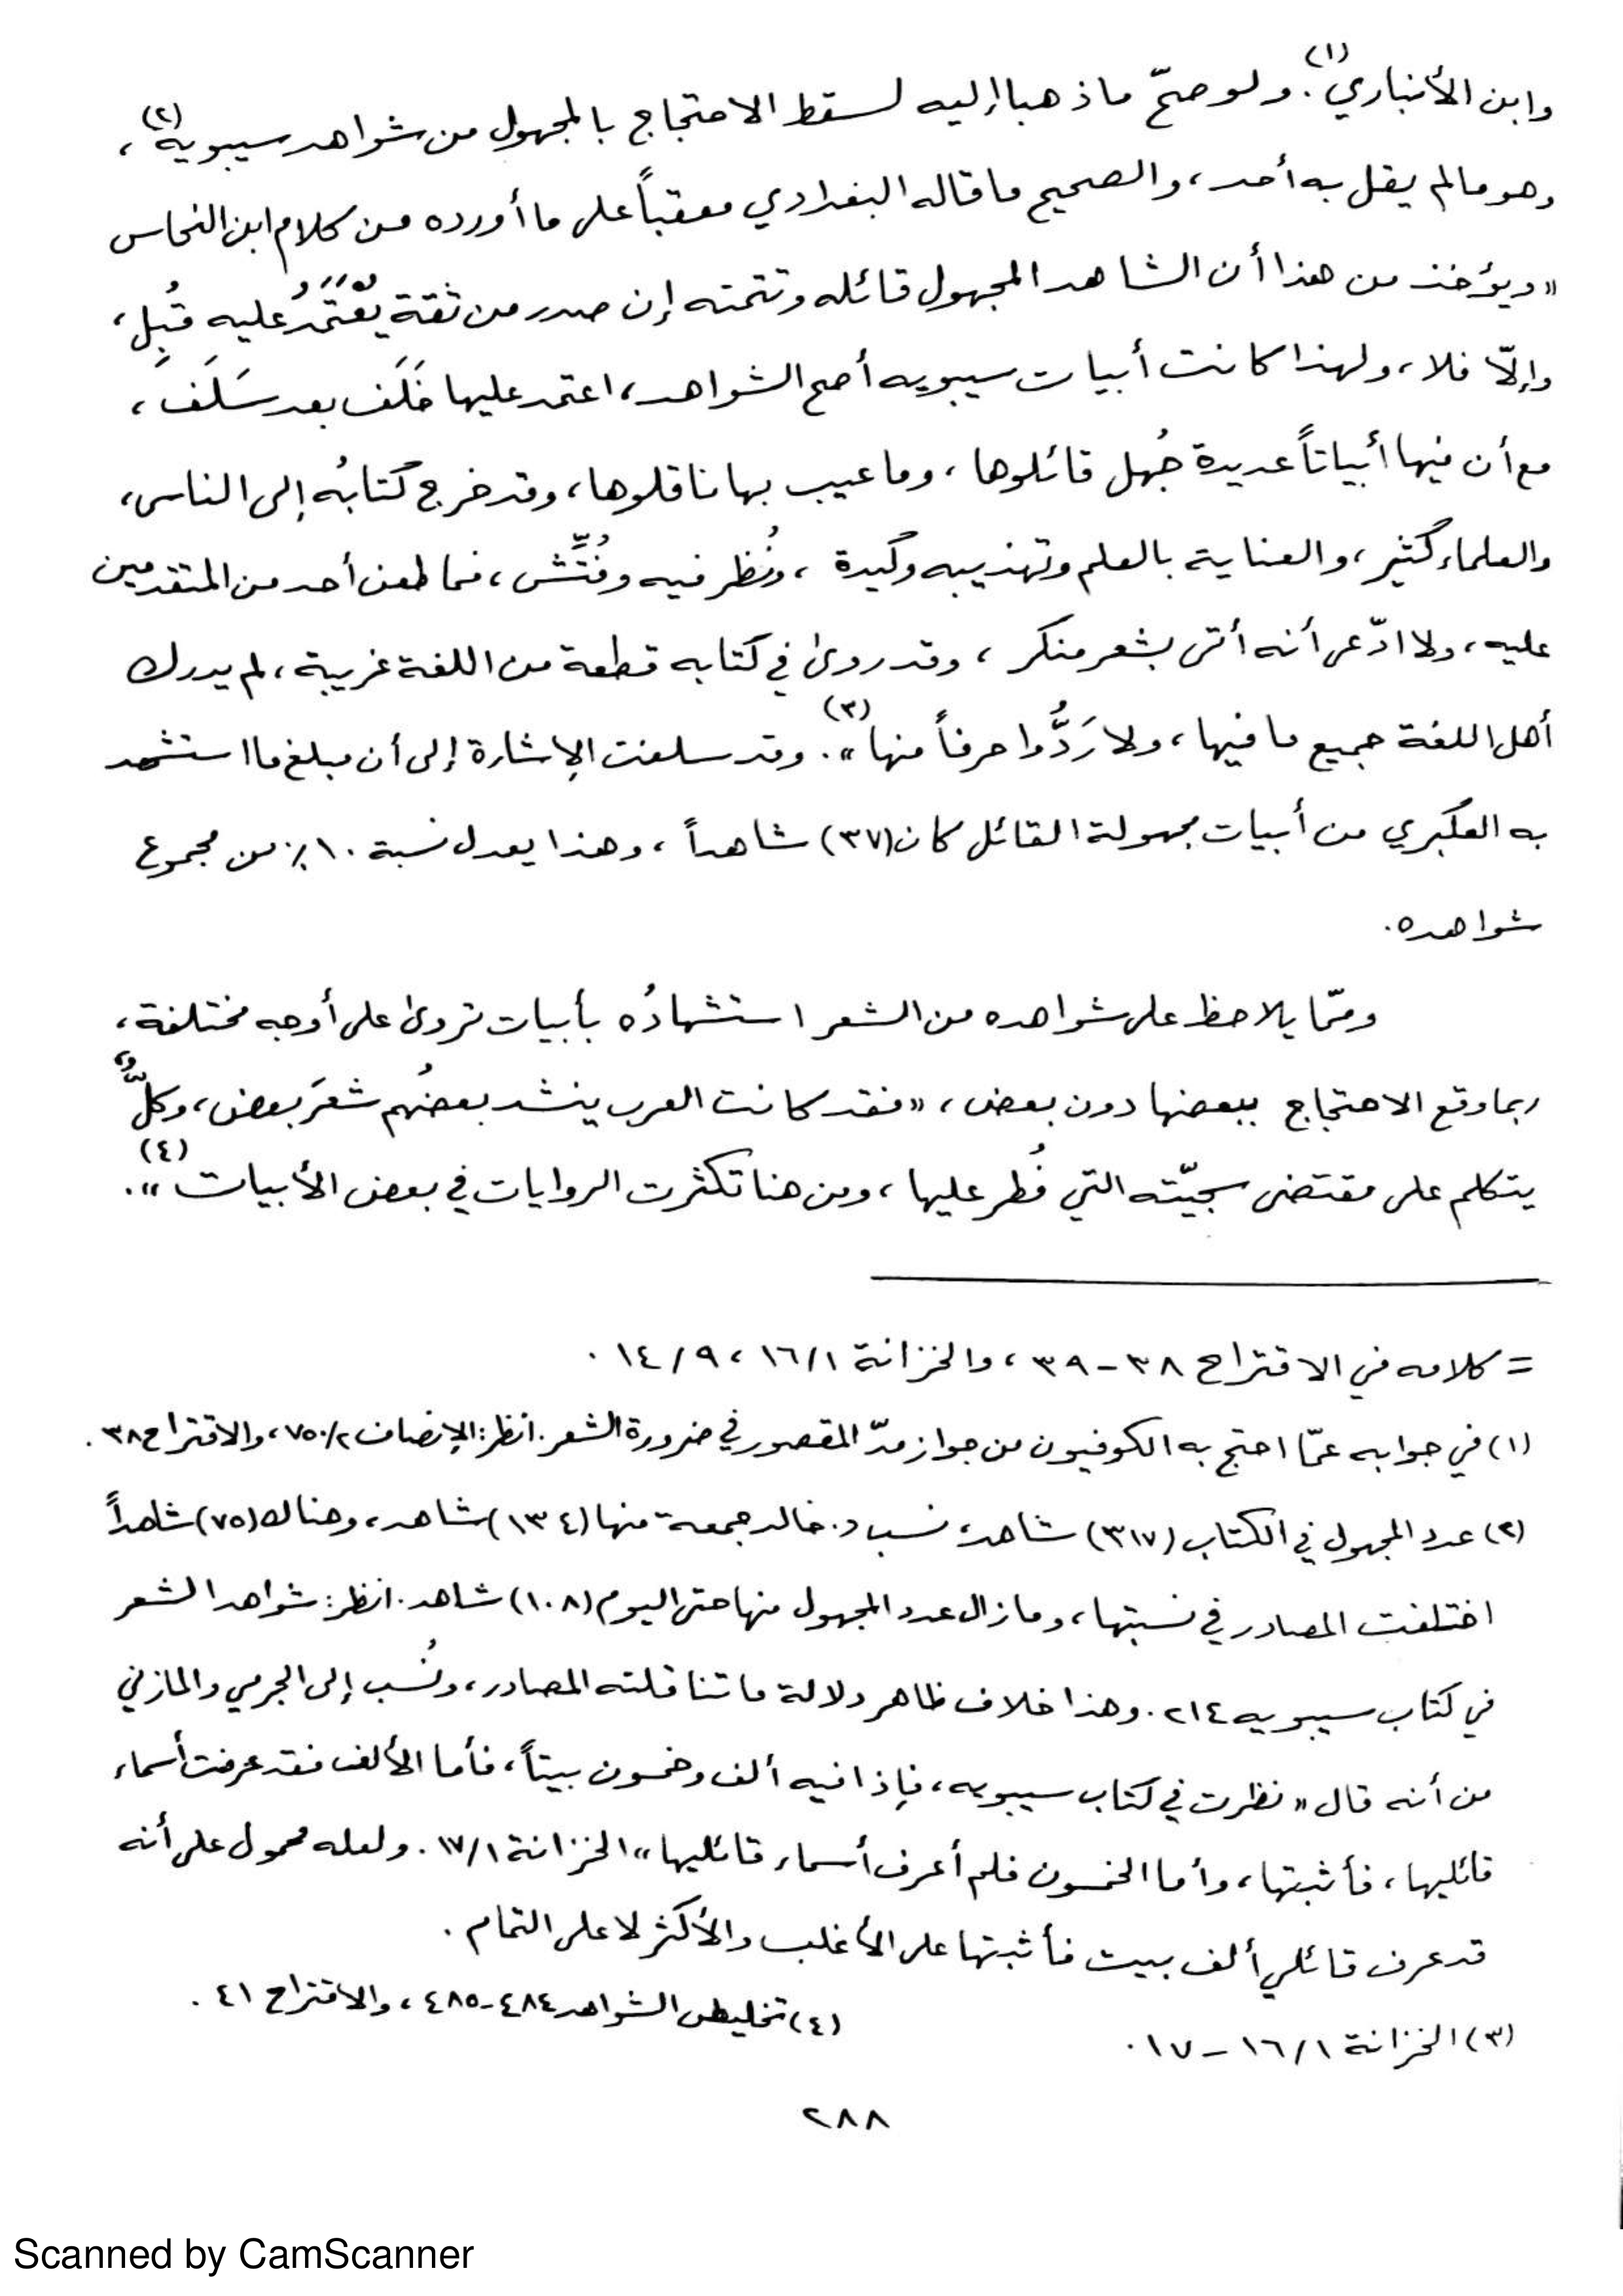 وابن الأنباري(١). ولو صحّ ما ذهبا إليه لسقط الاحتجاج بالمجهول من شواهد سيبويه(٢)،
وهو ما لم يقل به أحد، والصحيح ما قاله البغدادي معقباً على ما أورده من كلام ابن النحاس
«ويؤخذ من هذا أن الشاهد المجهول قائله وتتمته إن صدر من ثقة يُعْتَمَدُ عليه قُبِل،
وإلّا فلا، ولهذا كانت أبيات سيبويه أصح الشواهد، اعتمد عليها خَلَف بعد سَلَف،
مع أن فيها أبياتاً عديدة جُهل قائلوها، وما عيب بها ناقلوها، وقد خرج كتابُه إلى الناس،
والعلماء كثير، والعناية بالعلم وتهذيبه وكيدة، ونُظر فيه وفُتِّش، فما طعن أحد من المتقدمين
عليه، ولا ادّعى أنه أتى بشعر منكر، وقد روى في كتابه قطعة من اللغة غريبة، لم يدرك
أهل اللغة جميع ما فيها، ولا رَدُّوا حرفاً منها»(٣). وقد سلفت الإشارة إلى أن مبلغ ما استشهد
به العكبري من أبيات مجهولة القائل كان (٣٧) شاهداً، وهذا يعدل نسبة ١٠٪ من مجموع
شواهده.
وممّا يلاحظ على شواهده من الشعر استشهادُه بأبيات تروى على أوجه مختلفة،
ربما وقع الاحتجاج ببعضها دون بعض، «فقد كانت العرب ينشد بعضُهم شعرَ بعض، وكلٌّ
يتكلم على مقتضى سجيّته التي فُطر عليها، ومن هنا تكثرت الروايات في بعض الأبيات»(٤).
= كلامه في الاقتراح ٣٨ - ٣٩، والخزانة ١/ ١٦، ٩/ ١٤.
(١) في جوابه عمّا احتج به الكوفيون من جواز مدّ المقصور في ضرورة الشعر. انظر: الإنصاف ٢/ ٧٥٠، والاقتراح ٣٨.
(٢) عدد المجهول في الكتاب (٣١٧) شاهد، نسب د. خالد جمعة منها (١٣٤) شاهد، وهناك (٧٥) شاهداً
اختلفت المصادر في نسبتها، وما زال عدد المجهول منها حتى اليوم (١٠٨) شاهد. انظر: شواهد الشعر
في كتاب سيبويه ٢١٤. وهذا خلاف ظاهر دلالة ما تناقلته المصادر، ونُسب إلى الجرمي والمازني
من أنه قال «نظرت في كتاب سيبويه، فإذا فيه ألف وخمسون بيتاً، فأما الألف فقد عرفت أسماء
قائليها، فأثبتها، وأما الخمسون فلم أعرف أسماء قائليها» الخزانة ١/ ١٧. ولعله محمول على أنه
قد عرف قائلي ألف بيت فأثبتها على الأغلب والأكثر لا على التمام.
(٣) الخزانة ١/ ١٦ - ١٧. (٤) تخليص الشواهد ٤٨٤-٤٨٥، والاقتراح ٤١.
٢٨٨
Scanned by CamScanner